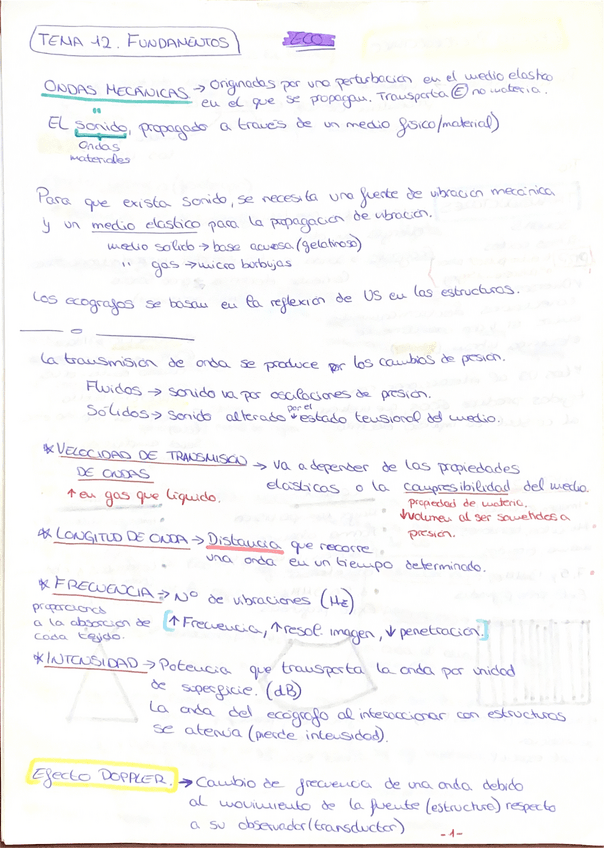 TEMA 12. FUNDAMENTOS
ECO
ONDAS MECÁNICAS → Originadas por una perturbacion en el medio elastico
en el que se propagan. Transporta (E) no materia.
"
EL sonido, propagado a través de un medio físico/material)
Ondas
materiales
Para que exista sonido, se necesita una fuente de vibracion mecánica
y un medio elastico para la propagacion de vibracion.
medio solido → base acuosa (gelatinosa)
" gas → micro burbujas
Los ecografos se basan en la reflexion de US en las estructuras.
La transmision de onda se produce por los cambios de presion.
Fluidos → sonido va por oscilaciones de presion.
Sólidos → sonido alterado por el estado tensional del medio.
* VELOCIDAD DE TRANSMISION → Va a depender de las propiedades
DE ONDAS elasticas o la compresibilidad del medio.
↑ en gas que líquido.
propiedad de materia.
↓volumen al ser sometidos a
presion.
* LONGITUD DE ONDA → Distancia que recorre
una onda en un tiempo determinado.
* FRECUENCIA → Nº de vibraciones (Hz)
proporcional
a la absorcion de
cada tejido.
[↑ Frecuencia, ↑ resol. imagen, ↓ penetracion.]
* INTENSIDAD → Potencia que transporta la onda por unidad
de superficie. (dB)
La onda del ecógrafo al interaccionar con estructuras
se atenua (pierde intensidad).
Efecto DOPPLER. → Cambio de frecuencia de una onda debido
al movimiento de la fuente (estructura) respecto
a su observador (transductor)
-1-